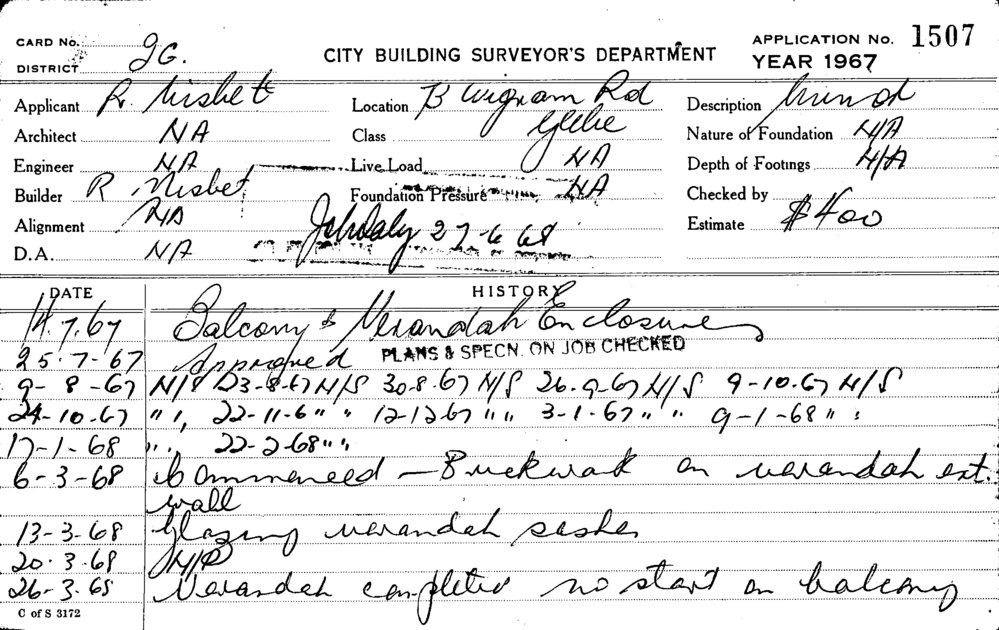 CARD No. 2G.
DISTRICT
CITY BUILDING SURVEYOR'S DEPARTMENT
APPLICATION No. 1507
YEAR 1967
Applicant R. Nisbet
Location 73 Wigram Rd
Glebe
Description
Architect NA
Class
Nature of Foundation N/A
Engineer NA
Live Load NA
Depth of Footings N/A
Builder R Nisbet
Foundation Pressure NA
Checked by
Alignment NA
27-6-68
Estimate $400
D.A. N/A
DATE
HISTORY
14.7.67 Balcony & Verandah Enclosure
25.7-67 Approved PLANS & SPECN. ON JOB CHECKED
9-8-67 N/S 23-8-67 N/S 30.8.67 N/S 26.9-67 N/S 9-10.67 N/S
24-10.67 " ", 22-11-6 " " 12-12.67 " " 3-1-67 " " 9-1-68 " "
17-1-68 " " 22-2-68 " "
6-3-68 Commenced - Brickwork on verandah ext.
wall
13-3-68 Glazing verandah sashes
20.3.68
26-3.68 Verandah completed no start on balcony
C of S 3172